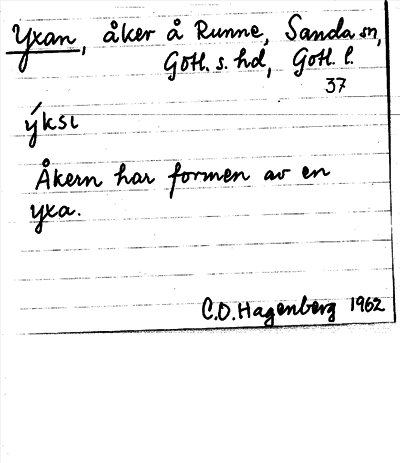 Yxan, åker å Runne, Sanda sn,
Gotl. s. hd, Gotl. l.
37
ýksι
Åkern har formen av en
yxa.
C.O. Hagenberg 1962